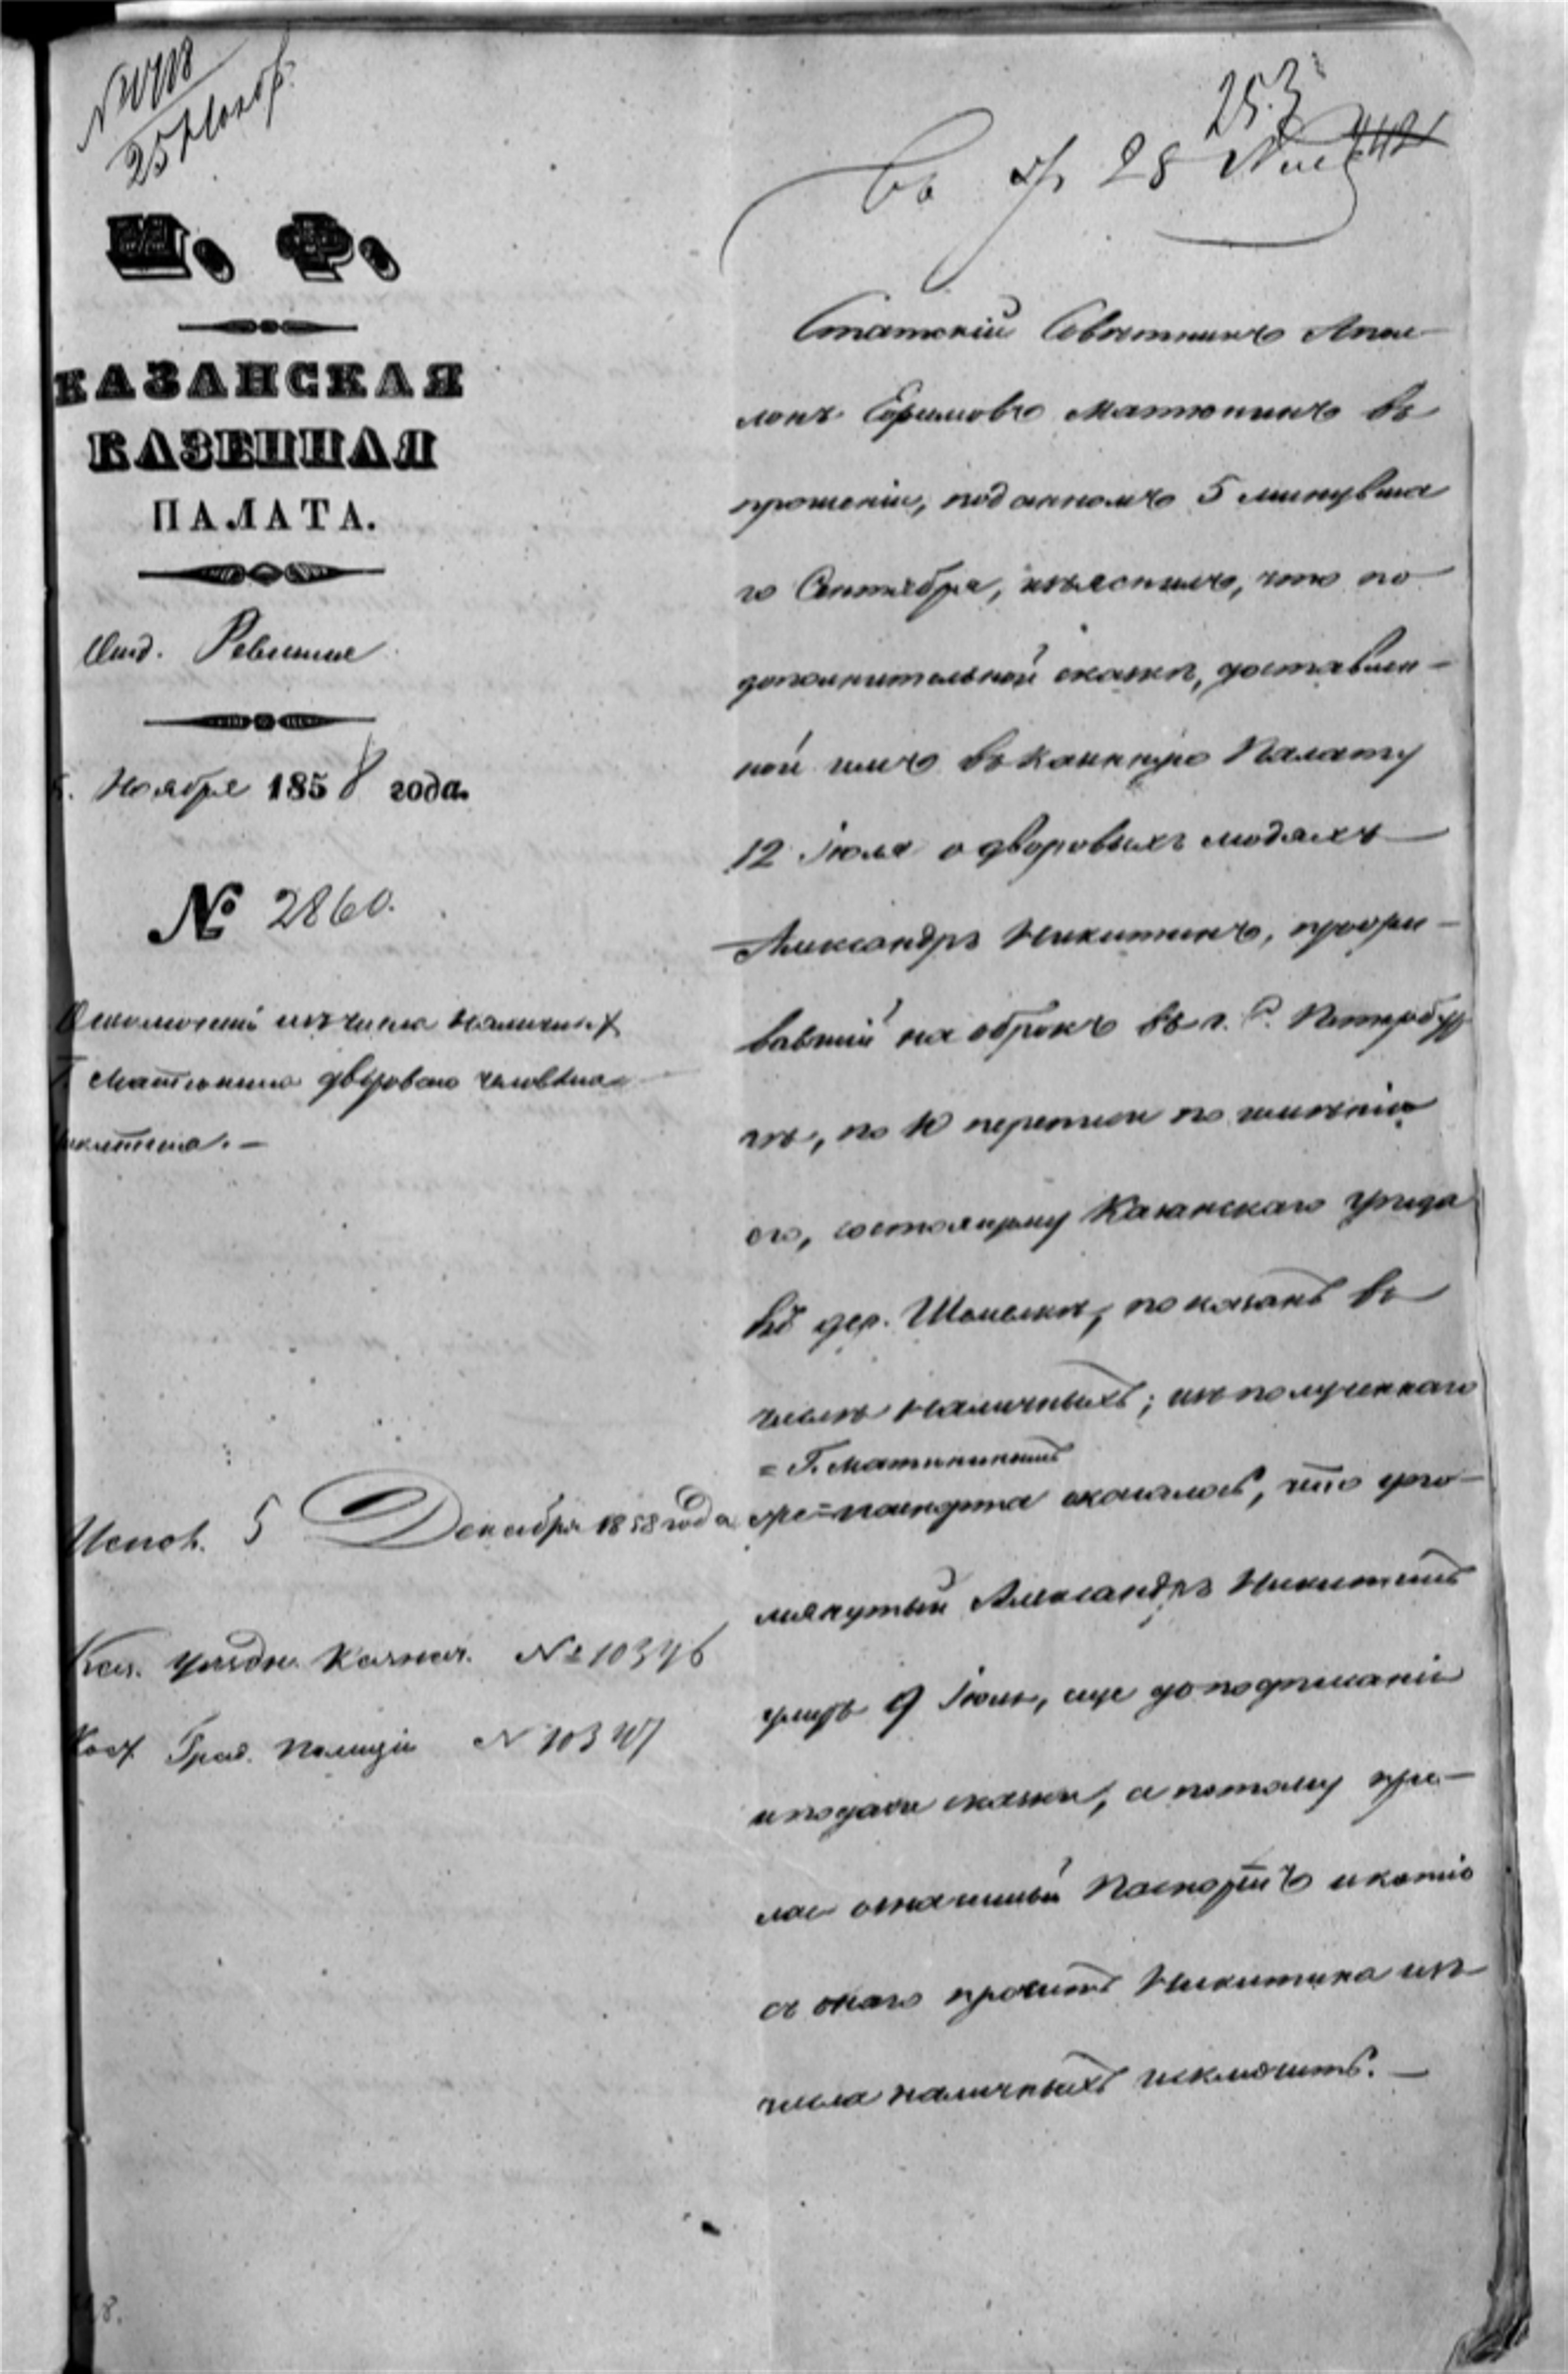 25 Ноябр.
253
28
М. Ф.
КАЗАНСКАЯ
КАЗЕННАЯ
ПАЛАТА.
Отд. Ревизское
Ноября 1858 года.
№ 2860.
наличных
Г. Матюнина двороваго человека
Испол. 5 Декабря 1858 года
Каз. Уездн. Казнач. № 10346
Град. Полиции № 10347
Статскій Советникъ Апол-
лонъ Ефимовъ Матюнинъ въ
прошеніи, поданномъ 5 минувша
го Сентября, изъяснилъ, что по
дополнительной сказке, доставлен-
ной имъ въ Казенную Палату
12 Іюля о дворовыхъ людяхъ
Александръ Никитинъ, прожи-
вавшій на оброке въ г. С. Петербур
ге, по 10 переписи по именію
его, состоящему Казанскаго уезда
въ дер. показанъ въ
числе наличныхъ; изъ полученнаго
= Г. Матюнинымъ
же = паспорта оказалось, что упо-
мянутый Александръ Никитинъ
умеръ 9 Іюля, еще до подписанія
и подачи сказки, а потому при-
лагая означенный Паспортъ и копію
съ онаго проситъ Никитина изъ
числа наличныхъ исключить. —